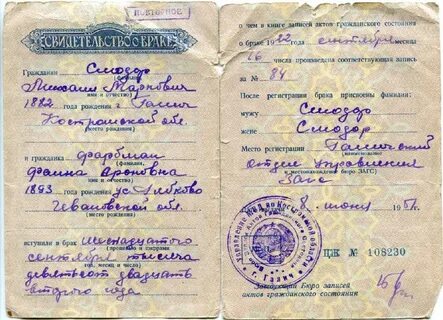 ПОВТОРНОЕ
СВИДЕТЕЛЬСТВО О БРАКЕ
Гражданин Смодор
(фамилия,
Михаил Маркович
имя и отчество)
1882 года рождения г. Галич
Костромской обл.
(место рождения)
и гражданка Фарбман
(фамилия,
Фаина Ароновна
имя и отчество)
1893 года рождения
Ивановской обл.
(место рождения)
вступили в брак шестнадцатого
(прописью и цифрами
сентября тысяча
год, месяц и число)
девятьсот двадцать
второго года
о чем в книге записей актов гражданского состояния
о браке 1922 года сентября месяца
16 числа произведена соответствующая запись
за № 84
После регистрации брака присвоены фамилии:
мужу Смодор
жене Смодор
Место регистрации Галичский
отдел управления
и местонахождение бюро ЗАГС)
Загс
8 июня 195
ЦЖ № 108230
Заведующий Бюро записей
актов гражданского состояния